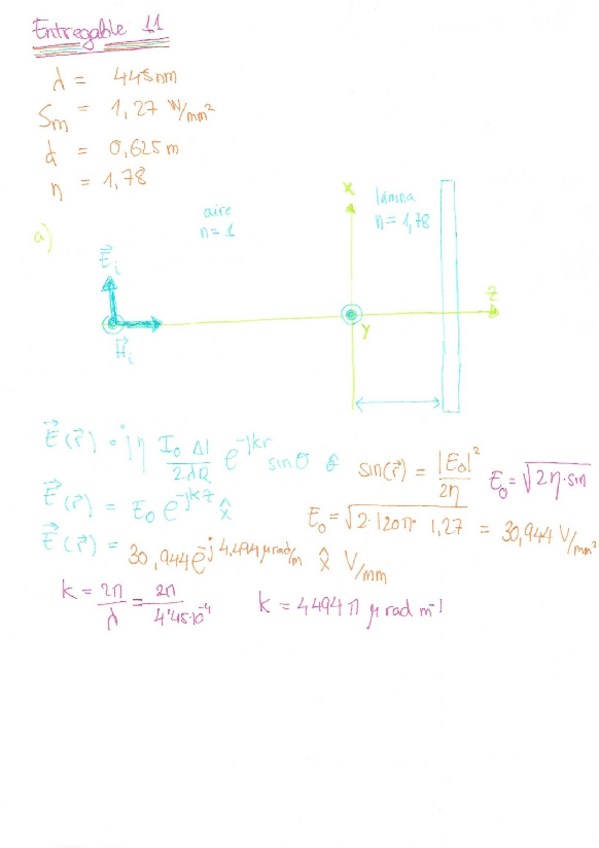 Entregable 11
λ = 445nm
Sm = 1,27 W/mm²
d = 0,625 m
n = 1,78
a)
aire
n = 1
x
lámna
n = 1,78
E⃗i
z
H⃗i
y
E⃗(r⃗) = jη I₀ Δl / 2λR e^-jkr sinθ θ̂
sin(r⃗) = |E₀|² / 2η
E₀ = √2η·sin
E⃗(r⃗) = E₀ e^-jkz x̂
E₀ = √2·120π· 1,27 = 30,944 V/mm²
E⃗(r⃗) = 30,944 e^-j 4,494 μrad/m x̂ V/mm
k = 2π / λ = 2π / 4'45·10⁻⁴
k = 4494π μ rad m⁻¹